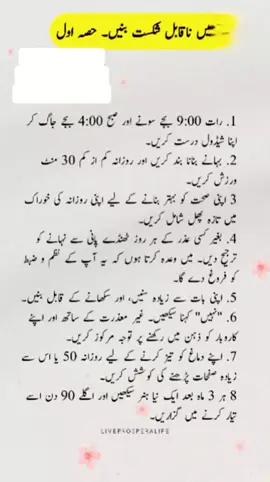 میں ناقابل شکست بنیں۔ حصہ اول
1. رات 9:00 بجے سونے اور صبح 4:00 بجے جاگ کر
اپنا شیڈول درست کریں۔
2. بہانے بنانا بند کریں اور روزانہ کم از کم 30 منٹ
ورزش کریں۔
3 اپنی صحت کو بہتر بنانے کے لیے اپنی روزانہ کی خوراک
میں تازہ پھل شامل کریں۔
4. بغیر کسی عذر کے ہر روز ٹھنڈے پانی سے نہانے کو
ترجیح دیں۔ میں وعدہ کرتا ہوں کہ یہ آپ کے نظم و ضبط
کو فروغ دے گا۔
5. اپنی بات سے زیادہ سنیں، اور سکھانے کے قابل بنیں۔
6. "نہیں" کہنا سیکھیں۔ غیر معذرت کے ساتھ اور اپنے
کاروبار کو ذہن میں رکھنے پر توجہ مرکوز کریں۔
7. اپنے دماغ کو تیز کرنے کے لیے روزانہ 50 یا اس سے
زیادہ صفحات پڑھنے کی کوشش کریں۔
8 ہر 3 ماہ بعد ایک نیا ہنر سیکھیں اور اگلے 90 دن اسے
تیار کرنے میں گزاریں۔
LIVEPROSPERALIFE